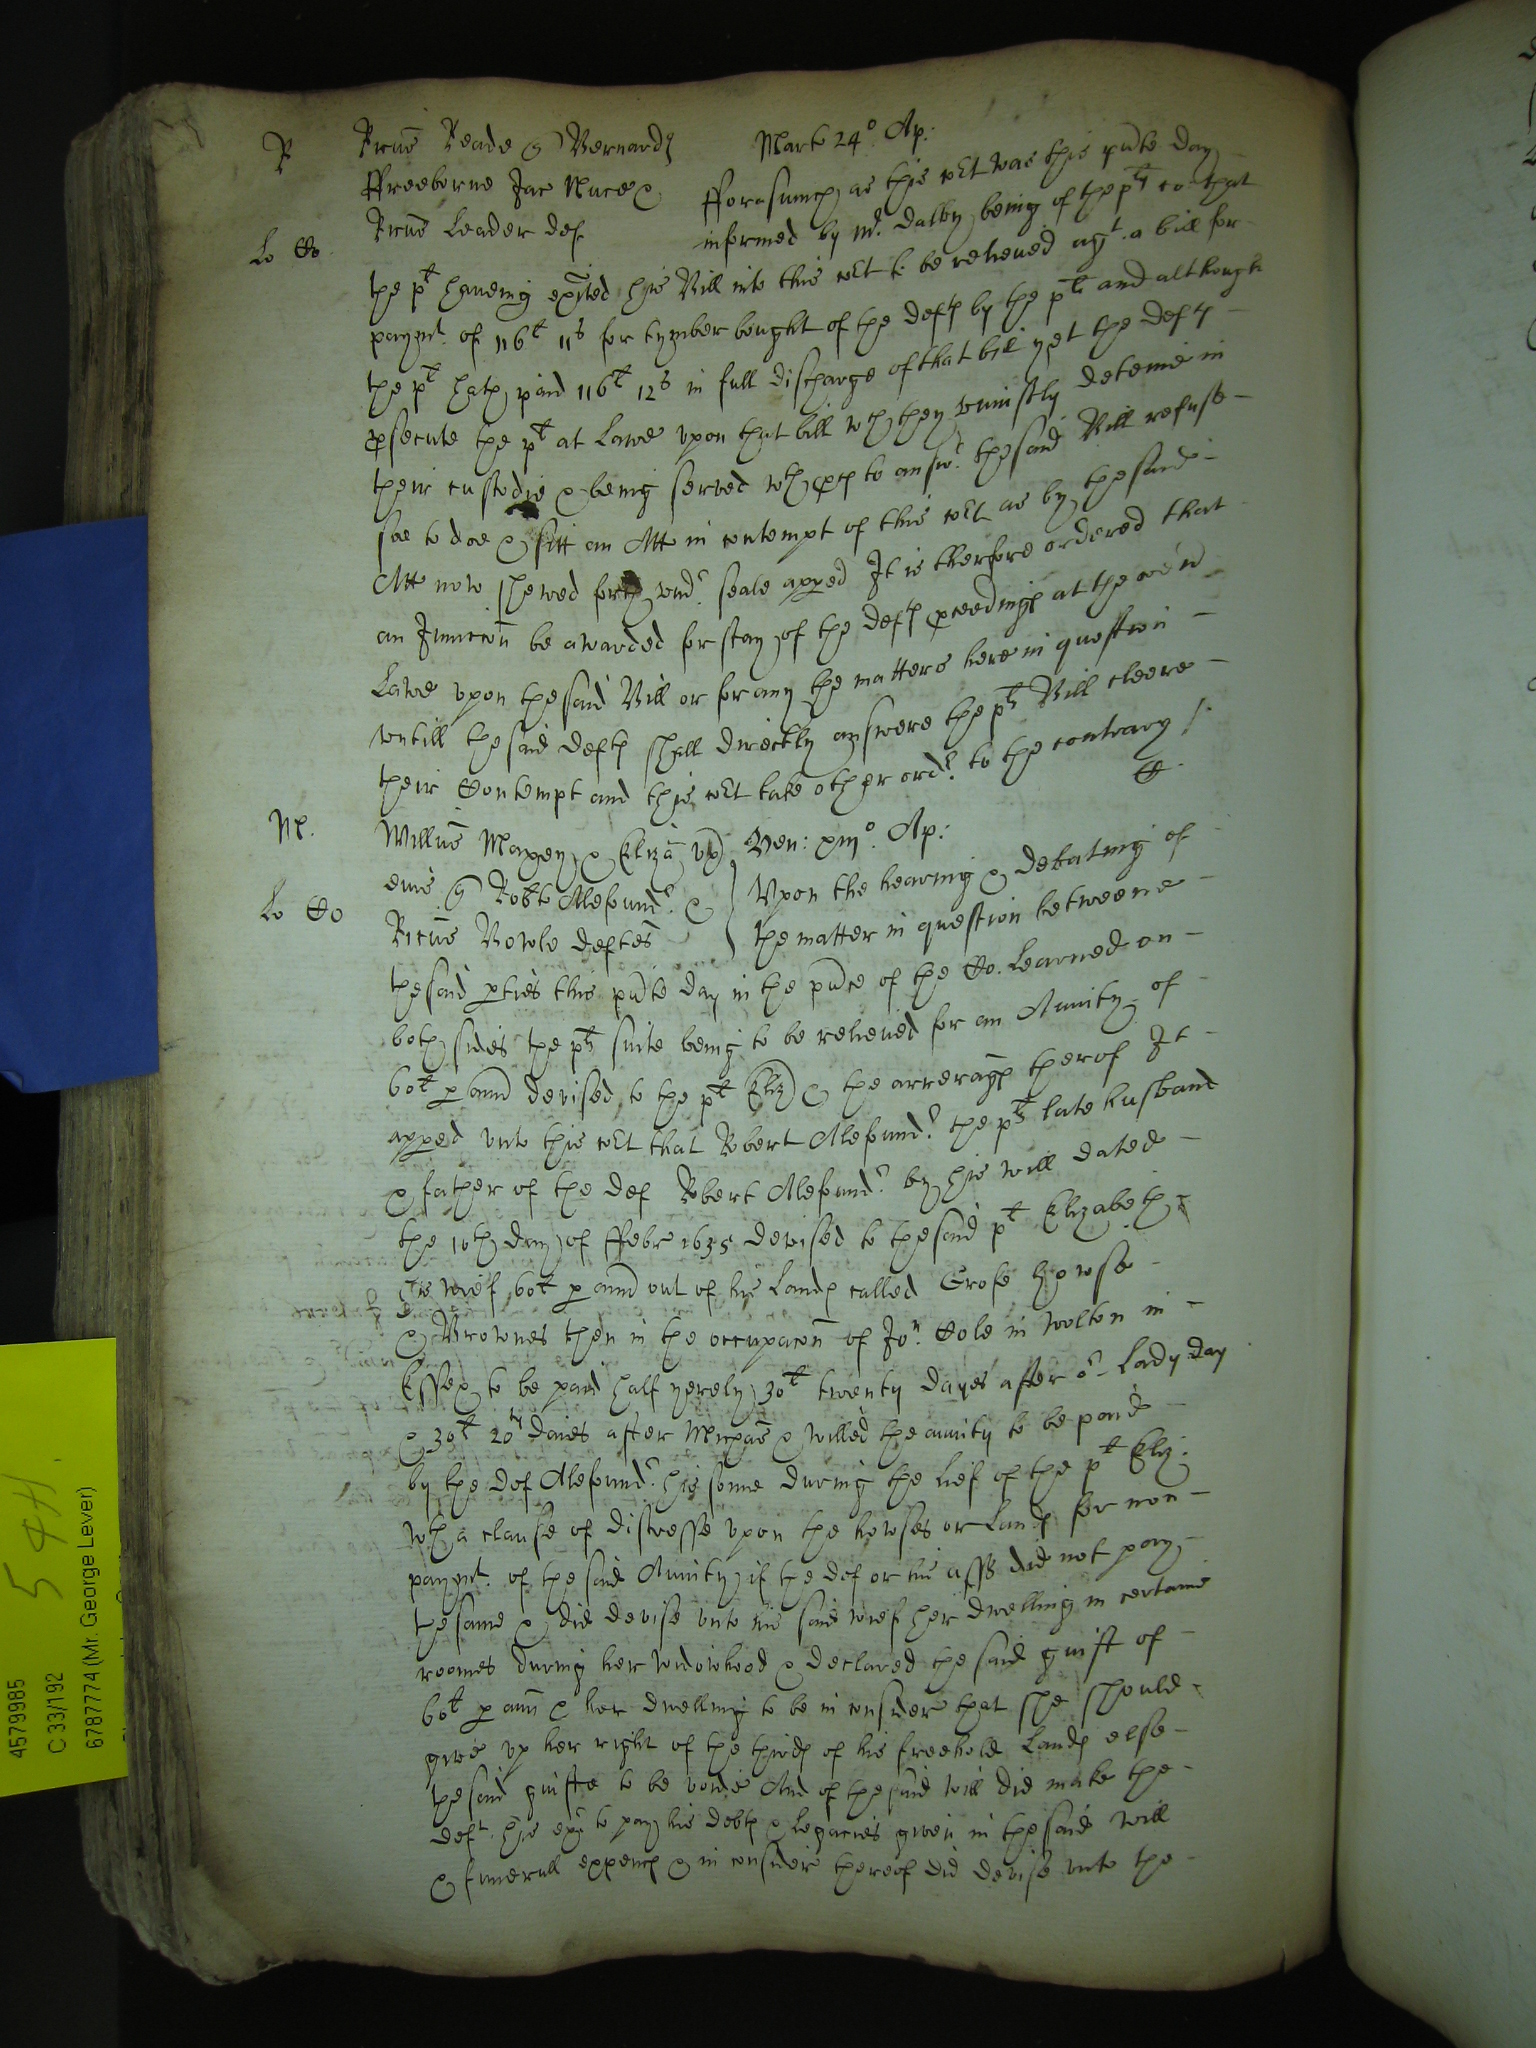 R
Ricus Reade q Bernard
ffreeborne Jac Nuce &
Ricus Leader def
Lo Co
Marts 24o Ap:
fforasmuch as this Court was this pnte day
informed by Mr. Dalby being of the plts co: that
the plt haveing exited his Bill into this Court to be releived agt. a bill for
paymt. of 116l 11s for tymber bought of the defts by the plt and although
the plt hath paid 116l 12s in full discharge of that bill yet the defts
psecute the plt at Lawe upon that bill wch they uniustly deteine in
their custodie & being served wth pces to answr. the said Bill refuse
soe to doe & sitt an Att in contempt of this Court as by the said
Att now shewed forth undr. seale apped It is therfore ordered that
an Iniuncon be awarded for stay of the defts pceedings at the coen
Lawe upon the said Bill or for any the matters here in question
untill the said defts shall directly answere the plts Bill cleere
their Contempt and this Court take other ordr. to the contrary /.
M.
Willus Maxey & Eliza ux
eius q Robto Alefoundr. &
Ricus Bowle deftes
Lo Co
Ven: xiijo. Ap:
Upon the hearing & debating of
the matter in question betweene
the said pties this pnte day in the pnce of the Co. Learned on
both sides the plts suite being to be releived for an Anuity of
60l p ann devised to the plt Eliz & the arrerages therof It
apped unto this Court that Robert Alefoundr. the plts late husband
& father of the def Robert Alefoundr. by his will dated
the 10th day of ffebr 1635 devised to the said plt Elizabeth
his wief 60l p ann out of his Lands called Grose howse
& Brownes then in the occupacon of Jon. Cole in Wolton in
Essex to be paid half yerely 30l twenty dayes after or Lady day
& 30l 20ty daies after Michas & willed the anuity to be paid
by the def Alefoundr. his sonne during the lief of the plt Eliz.
wth a clause of distresse upon the howses or Lands for non
paymt. of the said Anuity if the def or his asss did not pay
the same & did devise unto his said wief her dwelling in certaine
roomes during her widowhood & declared the said guift of
60l p ann & her dwelling to be in consider that she should
give up her right of the thirds of his freehold Lands else
the said guifte to be voide And of the said will did make the
deft. his exr to pay his debts & legacies given in the said will
& funerall expences & in consider thereof did devise unto the
4579985
C 33/192
6787774 (Mr. George Lever)